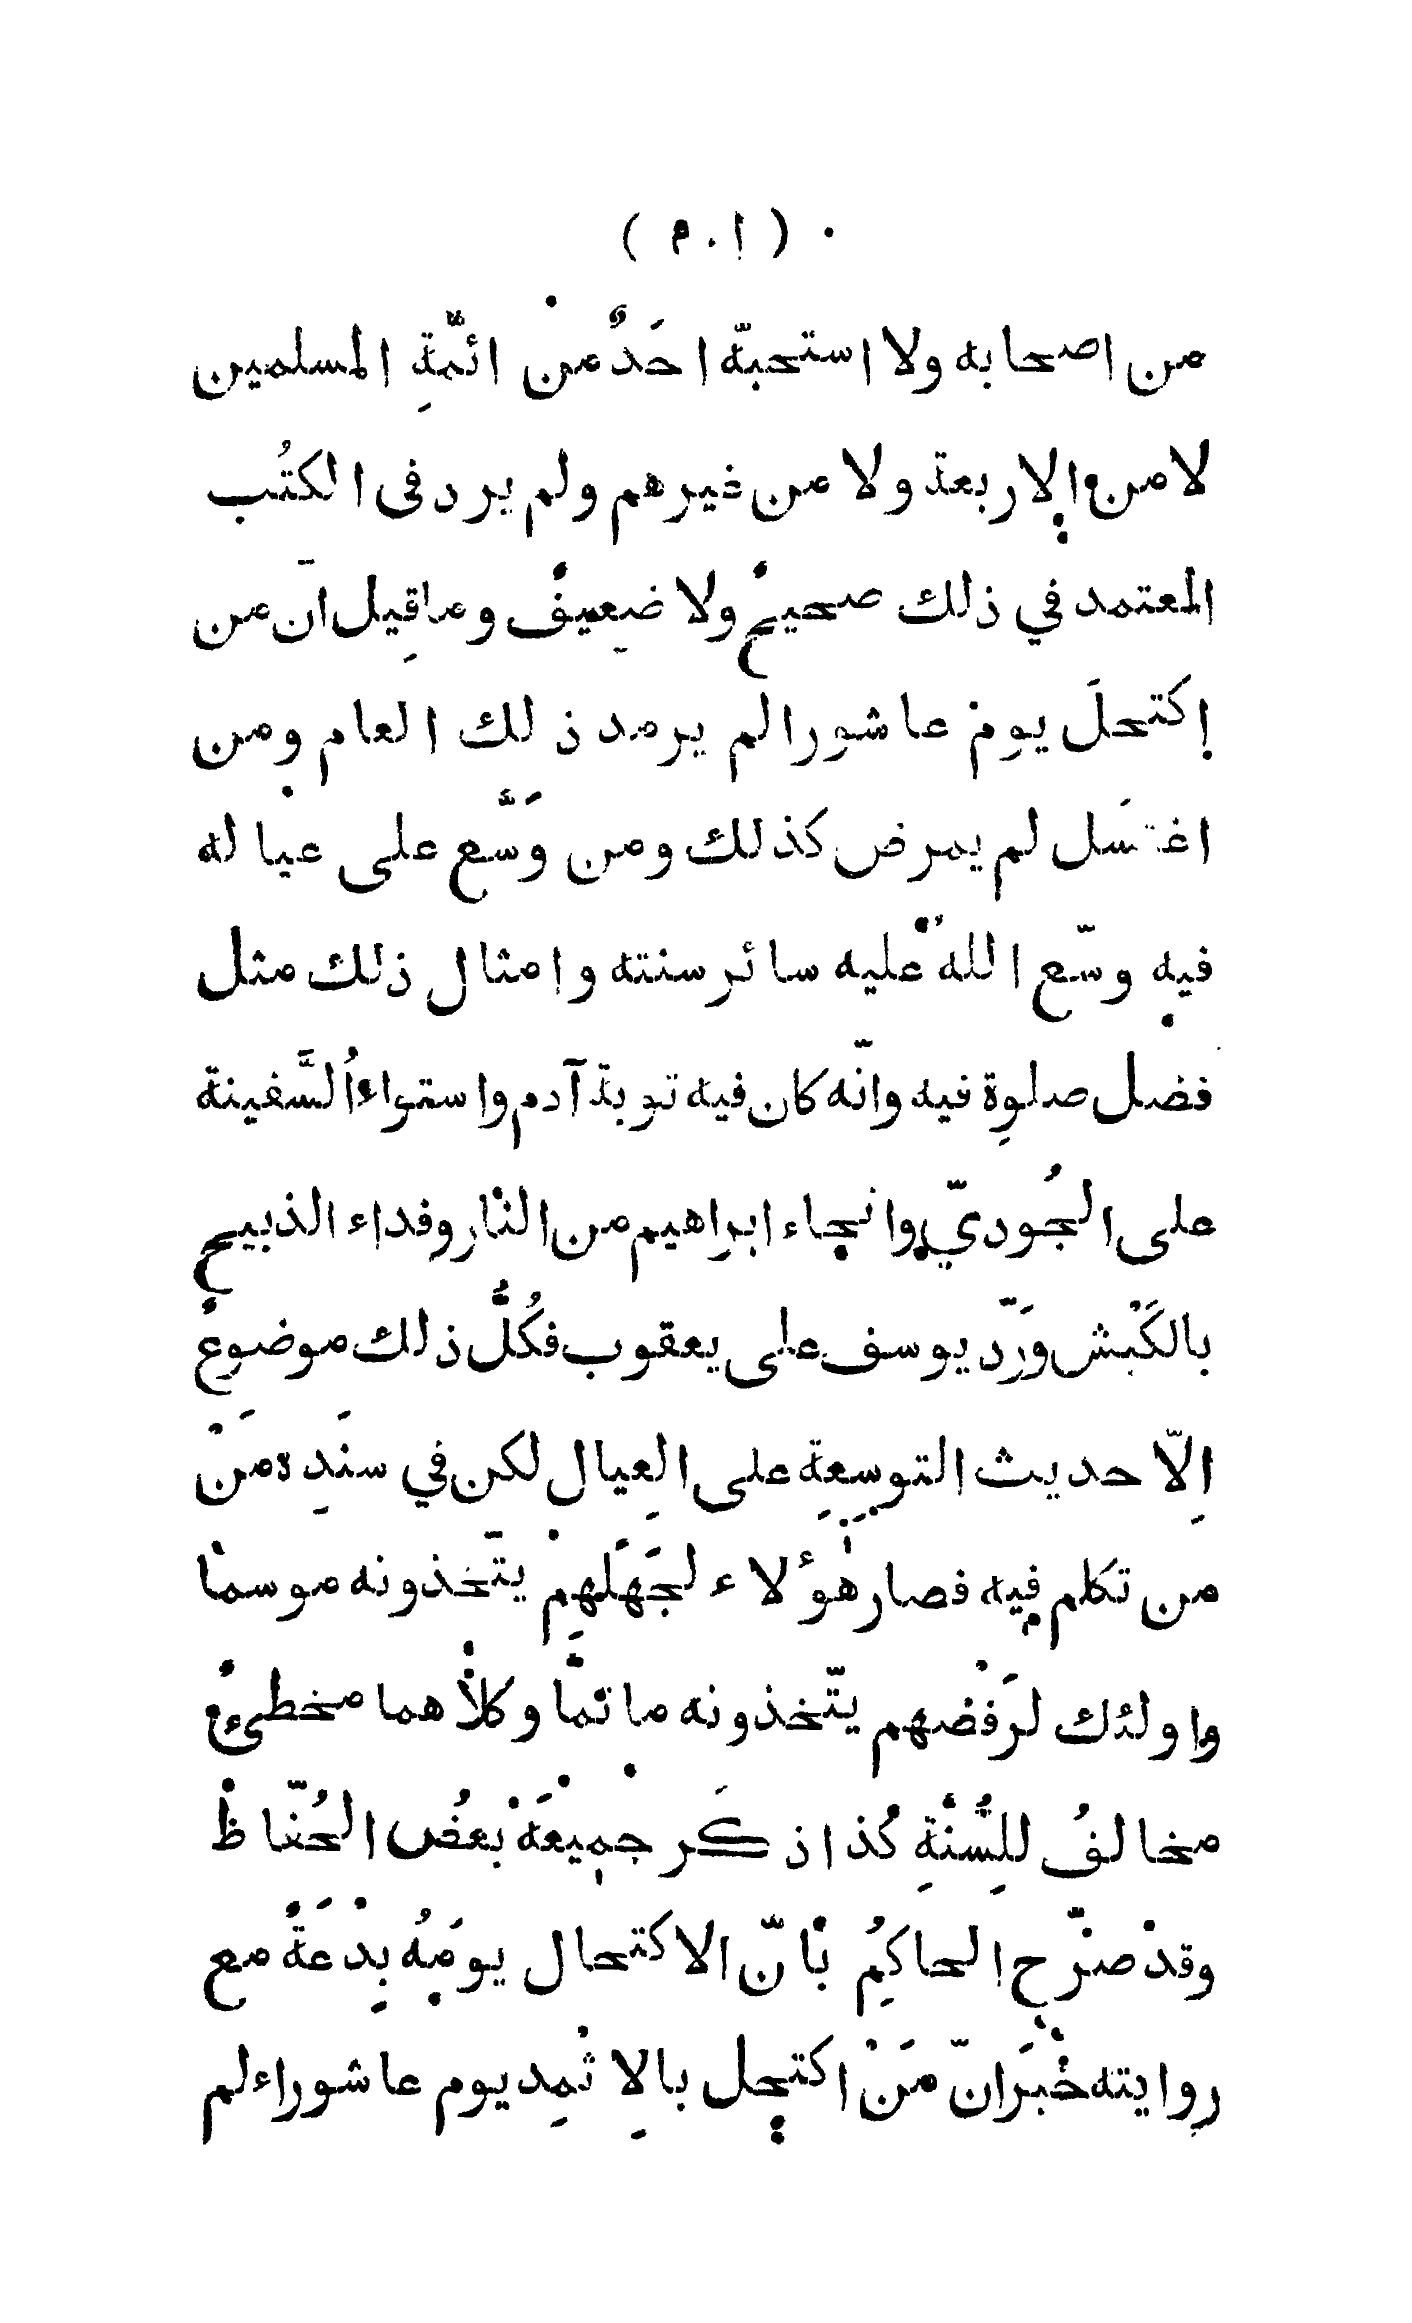 ( ٣٠١ )
من اصحابه ولا استحبّه احَدٌ من ائمّةِ المسلمين
لا من الاربعة ولا من غيرهم ولم يرد فى الكتُب
المعتمد في ذلك صحيحٌ ولا ضعيفٌ وما قِيل انّ من
إكتحلَ يوم عاشورا لم يرمد ذلك العام ومن
اغتسَل لم يمرض كذلك ومن وَسَّع على عياله
فيه وسّع اللهُ عليه سائر سنته وامثال ذلك مثل
فضل صلوةِ فيه وانّه كان فيه توبة آدم واستواءُ السَّفينة
على الجُوديّ وانجاء ابراهيم من النّار وفداء الذبيح
بالكَبْش ورَدّ يوسف على يعقوب فكُلُّ ذلك موضوعٌ
اِلّا حديث التوسِعةِ على العِيال لكن في سنَدِه مَنْ
من تكلم فيه فصار هٰؤلاء لجَهَلِهِمْ يتّخذونه موسمًا
واولئك لرَفْضهم يتّخذونه ماتمًا وكلاهما مخطئٌ
مخالفُ للِسُّنَّةِ كُذا ذكَر جميعَهْ بعضُ الحُفّاظ
وقدْ صرّح الحاكِمُ بانّ الاكتحال يومَهُ بِدْعَةٌ مع
روايته خْبَرَانّ مَنْ اكتحل بالِاثمِد يوم عاشوراء لم